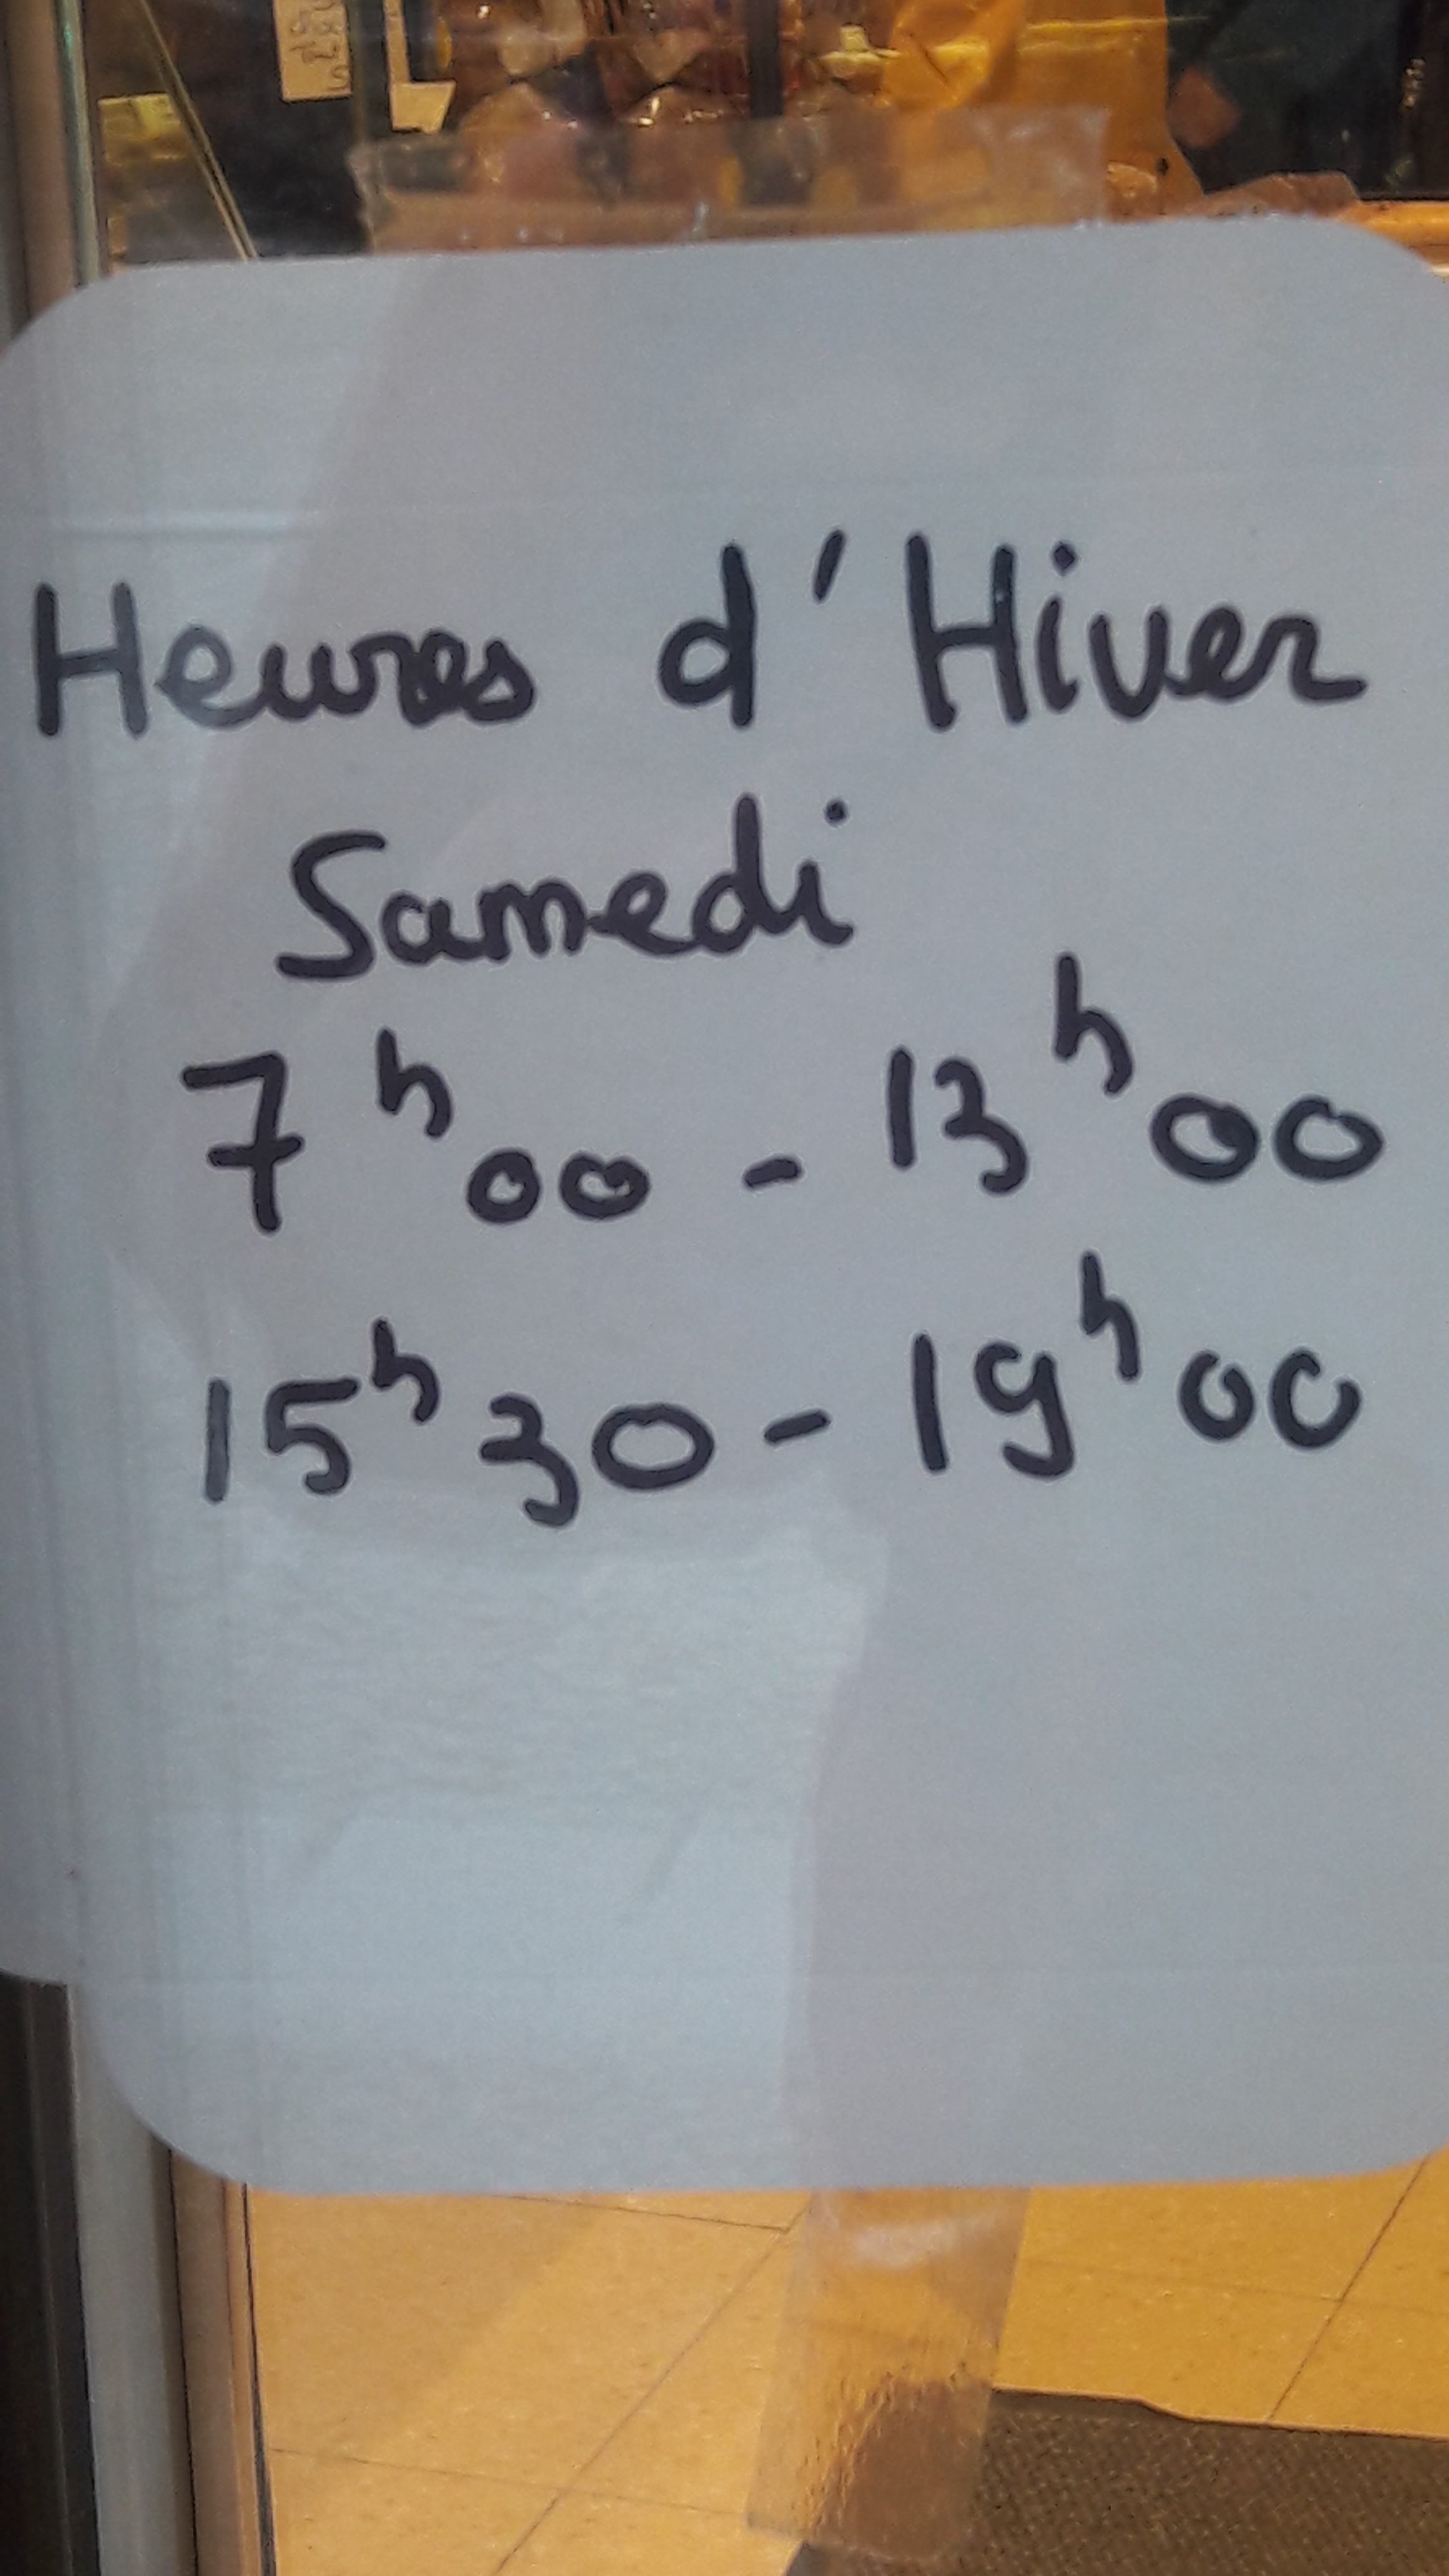 Heures d'Hiver
Samedi
7h00 - 13h00
15h30 - 19h00